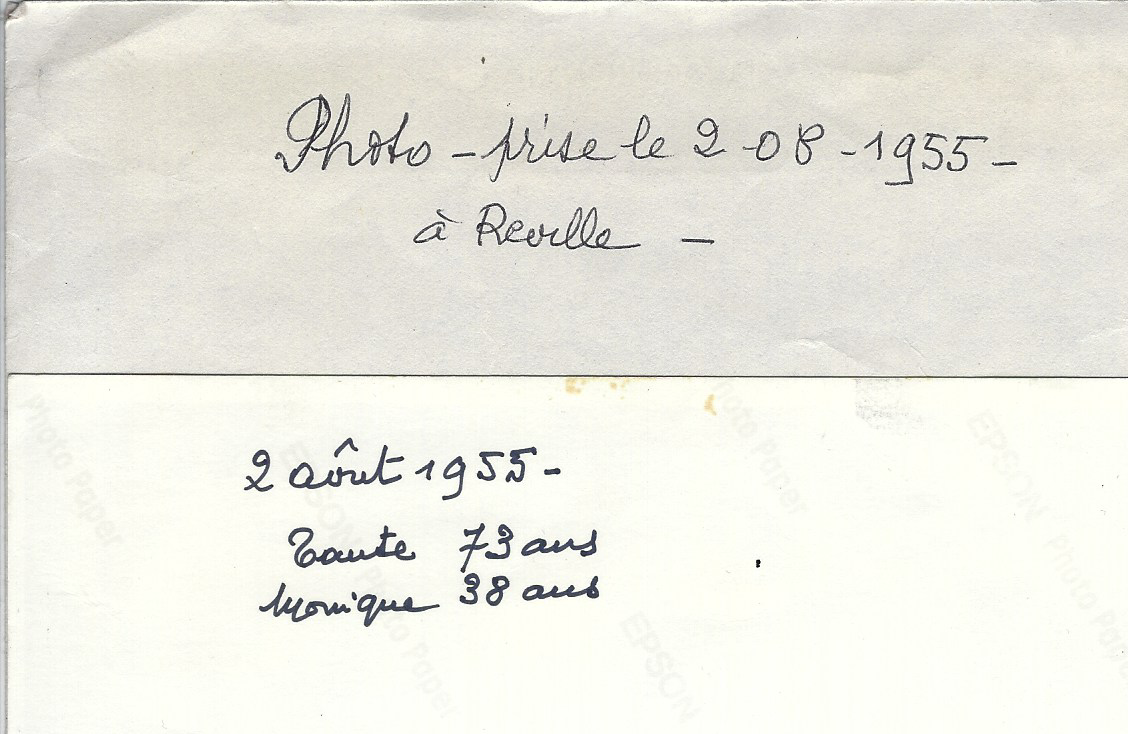 Photo - prise le 2-08-1955-
à Reville -
2 aôut 1955-
Tante 73 ans
Monique 38 ans
Photo Paper
EPSON
Photo Paper
EPSON
Photo Paper
EPSON
Photo Paper